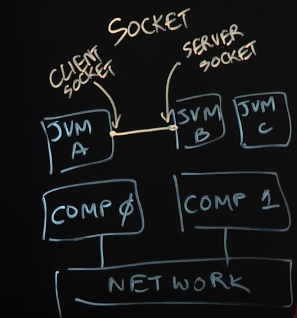 SOCKET
CLIENT
SOCKET
SERVER
SOCKET
JVM
A
JVM
B
JVM
C
COMP 0
COMP 1
NETWORK